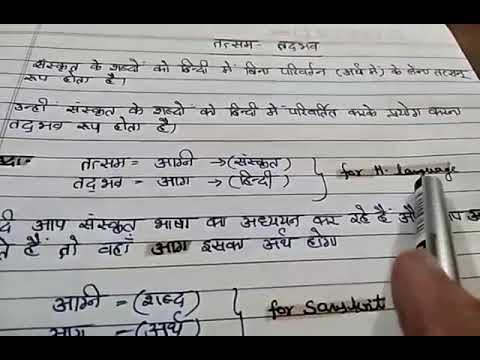 तत्सम - तद्भव
संस्कृत के शब्दों को हिन्दी में बिना परिवर्तन (अर्थ में) के लेना तत्सम्
रूप होता है।
उन्ही संस्कृत के शब्दों को हिन्दी में परिवर्तित करके प्रयोग करना
तद्भव रूप होता है।
तत्सम = अग्नि → (संस्कृत)
तद्भव = आग → (हिन्दी) for H. Language
आप संस्कृत भाषा का अध्ययन कर रहे हैं
हैं तो वहाँ आग इसका अर्थ होगा
अग्नि = (शब्द)
आग = (अर्थ) for Sanskrit